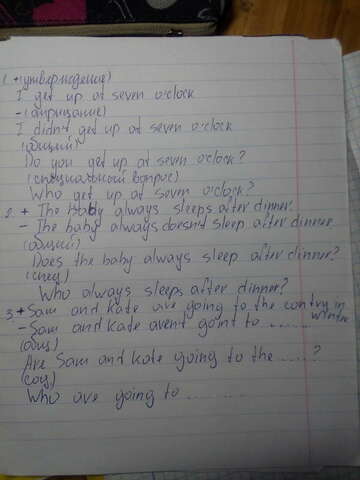 1 + (утверждение)
I get up at seven o'clock
- (отрицание)
I didn't get up at seven o'clock
(общий)
Do you get up at seven o'clock?
(специальный вопрос)
Who get up at seven o'clock?
2. + The baby always sleeps after dinner.
- The baby always doesn't sleep after dinner.
(общий)
Does the baby always sleep after dinner?
(спец)
Who always sleeps after dinner?
3. + Sam and Kate are going to the contry in winter
- Sam and Kate aren't goint to ........
(общ)
Are Sam and Kate going to the ......?
(спец)
Who are going to .........